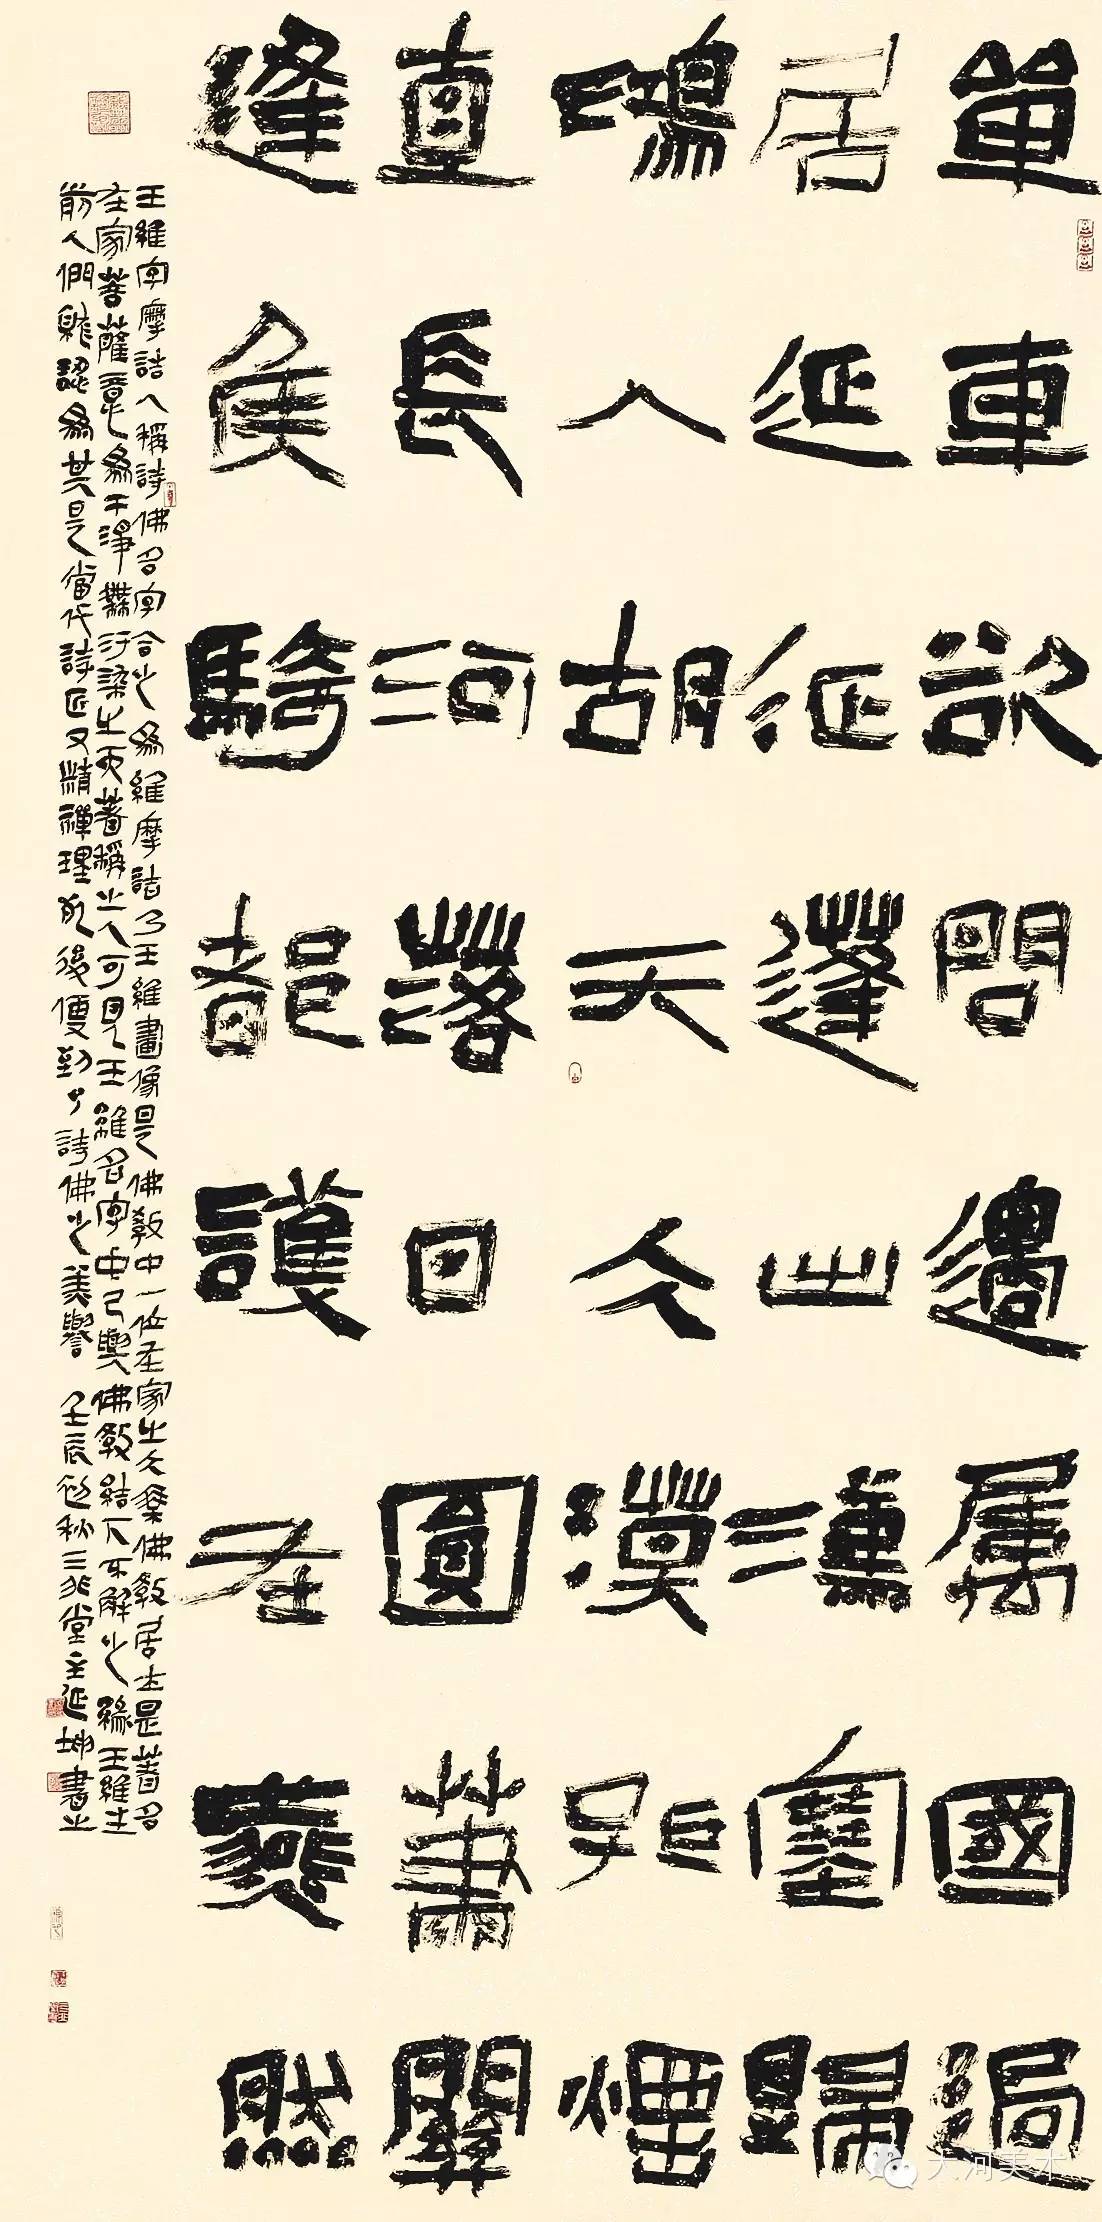 單車欲問邊屬國過
居延征蓬出漢塞歸
鴻入胡天大漠孤煙
直長河落日圓蕭關
逢侯騎都護在燕然
王維字摩詰人稱詩佛名字合之為維摩詰乃王維畫像是佛教中一位在家之大乘佛教居士是著名
在家菩薩意為干淨無污染之而著稱之人可見王維名字中已與佛教結下不解之緣王維生
前人們就認為其是當代詩匠又精禪理死後便到了詩佛之美譽 壬辰初秋三非堂主延坤書之
大河美术